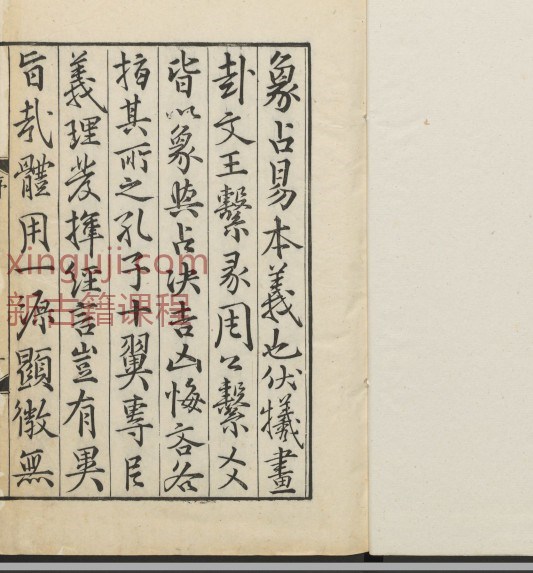 象占易本義也伏犧畫
卦文王繫彖周公繫爻
皆以象與占決吉凶悔吝各
指其所之孔子十翼專以
義理發揮經言豈有異
旨哉體用一源顯微無
序
xinguji.com
新古籍课程